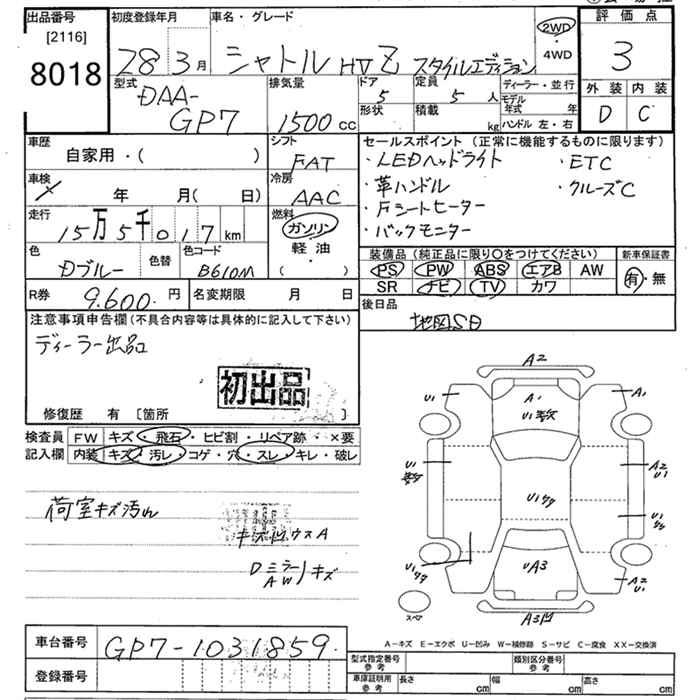 出品番号
[2116]
8018
初度登録年月
28 3月
車名・グレード
シャトル HV Z スタイルエディション
2WD
・
4WD
評価点
3
外装 内装
D C
型式
DAA-
GP7
排気量
1500 cc
ドア
5
形状
定員
5 人
積載
kg
ディーラー・並行
モデル年式 年
ハンドル 左・右
車歴
自家用・( )
シフト
FAT
車検
年 月( 日)
冷房
AAC
走行
15万5千017 km
燃料
ガソリン
軽油
・
( )
色
Dブルー
色替
色コード
B610M
R券
9,600 円
名変期限 月 日
セールスポイント(正常に機能するものに限ります)
・LEDヘッドライト ・ETC
・革ハンドル ・クルーズC
・Fシートヒーター
・バックモニター
装備品(純正品に限り○をつけてください)
PS PW ABS エアB AW
SR ナビ TV カワ
新車保証書
有・無
後日品
地図SD
注意事項申告欄(不具合内容等は具体的に記入して下さい)
ディーラー出品
初出品
修復歴 有 〔箇所 〕
検査員
記入欄
FW キズ・飛石・ヒビ割・リペア跡・×要
内装 キズ・汚レ・コゲ・穴・スレ・キレ・破レ
荷室キズ汚れ
Dミラー
AW キズ
A2
U1
A1
A1
U1
U1
A2
U1
U1
U1
U1
UA3
A2
U1
スペア
A3凹
A−キズ E−エクボ U−凹み W−補修跡 S−サビ C−腐食 XX−交換済
車台番号
GP7-1031859.
登録番号
型式指定番号
参考
類別区分番号
参考
車庫証明用
参考
長さ cm
幅 cm
高さ cm